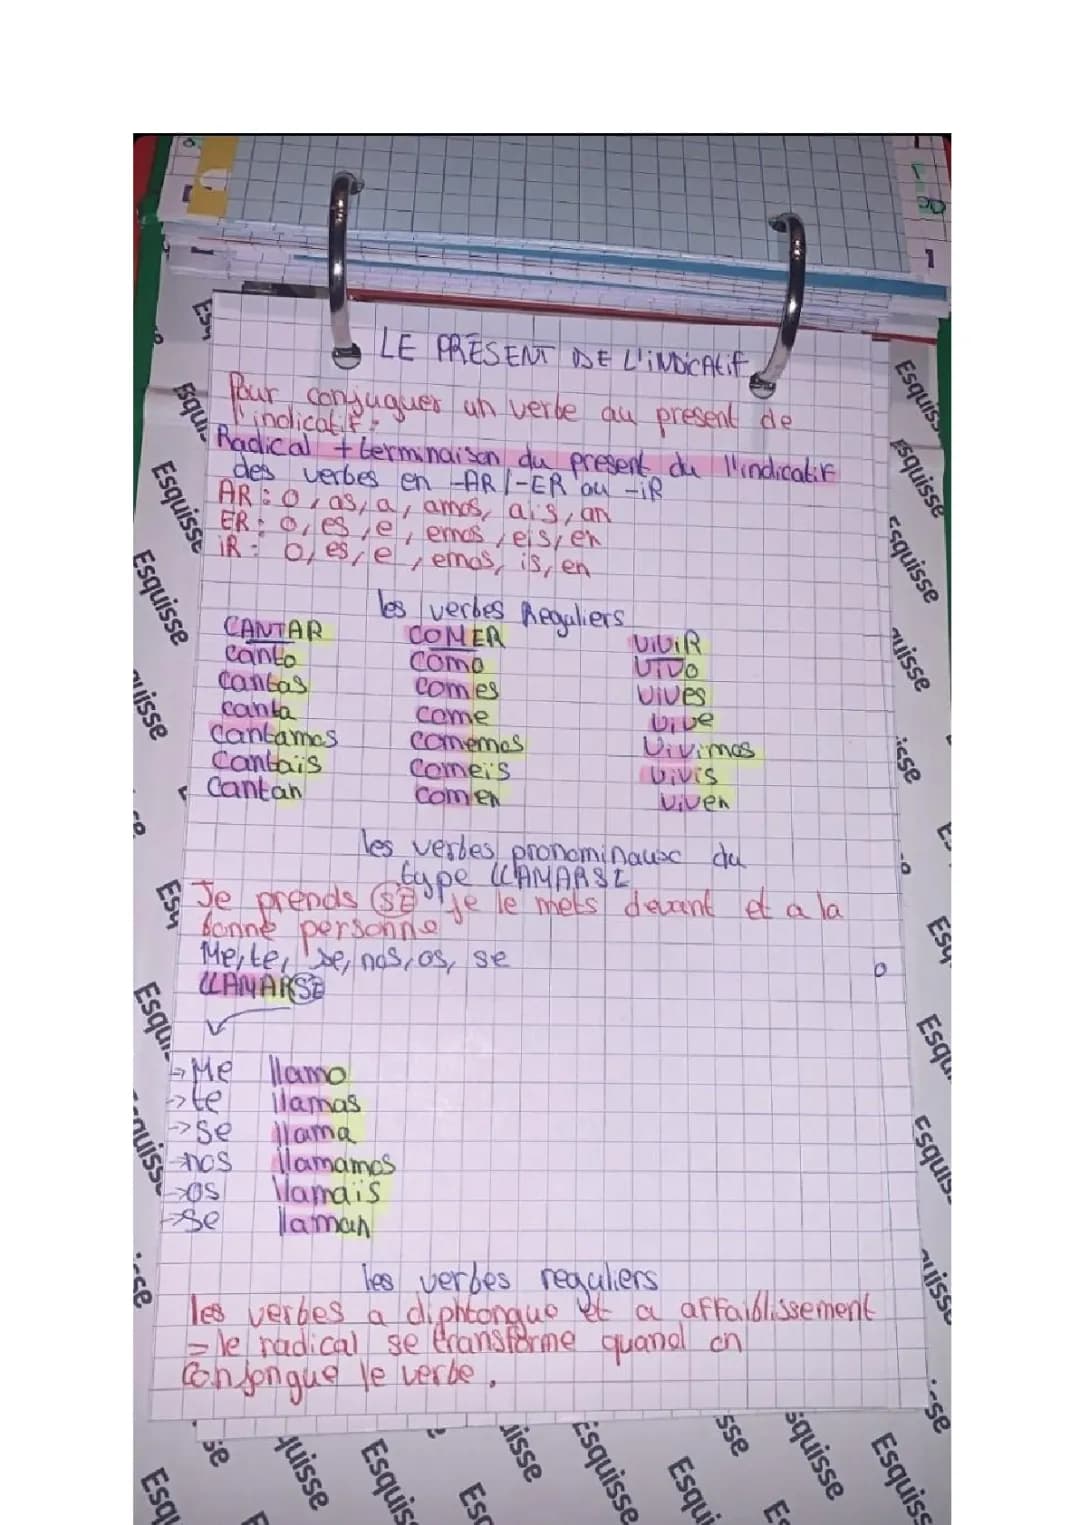 LE PRESENT DE L'iNDiCAtif
Pour conjuguer un verbe au present de
l'indicatif :
Radical + terminaison du present du l'indicatif
des verbes en -AR/-ER ou -iR
AR : o, as, a, amos, ais, an
ER : o, es, e, emos, eis, en
iR : o, es, e, emos, is, en
les verbes Reguliers
CANTAR COMER ViViR
canto como vivo
cantas comes vives
canta come vive
cantamos comemos vivimos
cantais comeis vivis
cantan comen viven
les verbes pronominaux du
type LLAMARSE
Je prends SE je le mets devant et a la
bonne personne
Me, te, se, nos, os, se
LLAMARSE
→ Me llamo
→ te llamas
→ se llama
→ nos llamamos
→ os llamais
→ se llaman
les verbes reguliers
les verbes a diphtongue et a affaiblissement
= le radical se transforme quand on
conjongue le verbe.
Esquisse
Esquisse
Esquisse
Esquisse
Esquisse
Esquisse